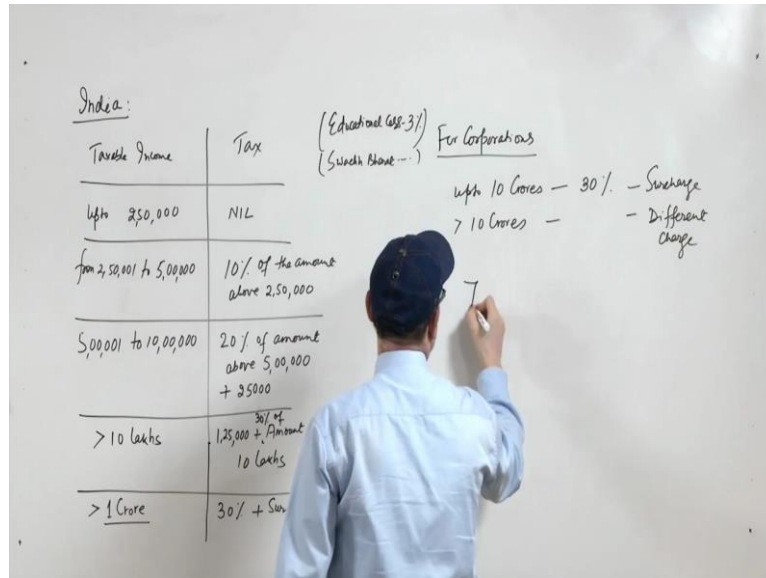 India:
Taxable Income
Tax
Upto 2,50,000
NIL
from 2,50,001 to 5,00,000
10% of the amount
above 2,50,000
5,00,001 to 10,00,000
20% of amount
above 5,00,000
+ 25000
> 10 Lakhs
30% of
1,25,000 + Amount
10 Lakhs
> 1 Crore
30% + Sur
(Educational Cess - 3%)
(Swachh Bharat ---)
For Corporations
upto 10 Crores - 30% - Surcharge
> 10 Crores - - Different
Charge